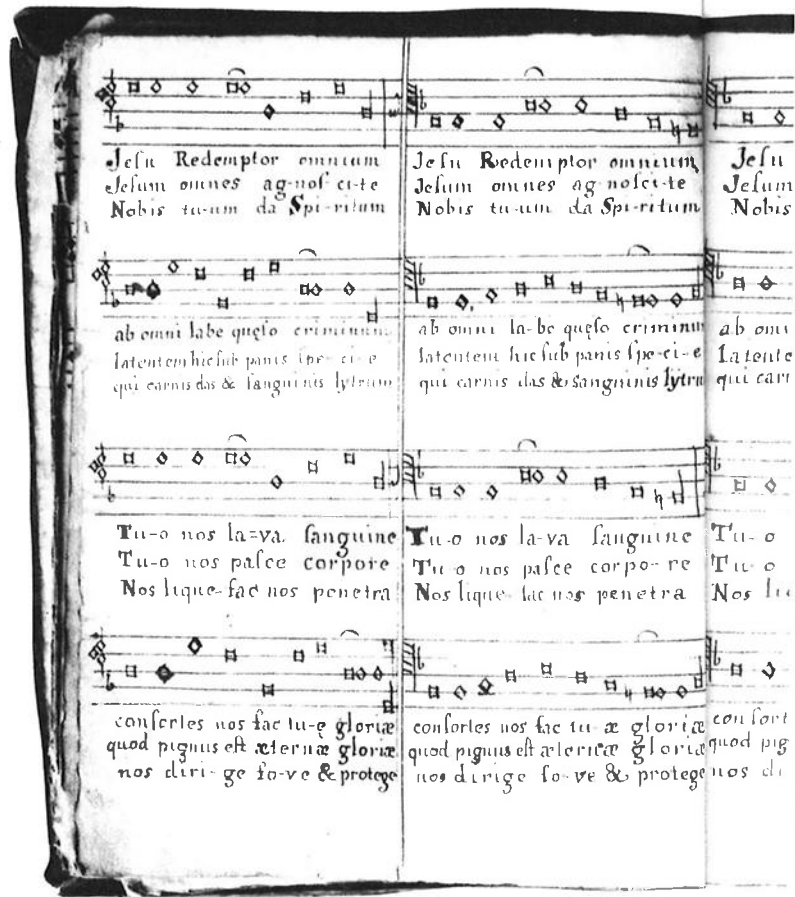 Jesu Redemptor omnium
Jesum omnes ag-nos-ci-te
Nobis tu-um da Spi-ritum
ab omni labe quęso criminum
latentem hic sub panis spe-ci-e
qui carnis das & sanguinis lytrum
Tu-o nos la=va sanguine
Tu-o nos pasce corpore
Nos lique-fac nos penetra
consortes nos fac tu-ę gloriæ
quod pignus est æternæ gloriæ
nos diri-ge fo-ve & protege
Jesu Redemptor omnium
Jesum omnes ag-nosci-te
Nobis tu-um da Spi-ritum
ab omni la-be quęso criminum
latentem hic sub panis spe-ci-e
qui carnis das & sanguinis lytru
Tu-o nos la-va sanguine
Tu-o nos pasce corpo-re
Nos lique-fac nos penetra
consortes nos fac tu-æ gloriæ
quod pignus est æternæ gloriæ
nos dirige fo-ve & protege
Jesu
Jesum
Nobis
ab omni
latente
qui carn
Tu-o
Tu-o
Nos li
consort
quod pig
nos di